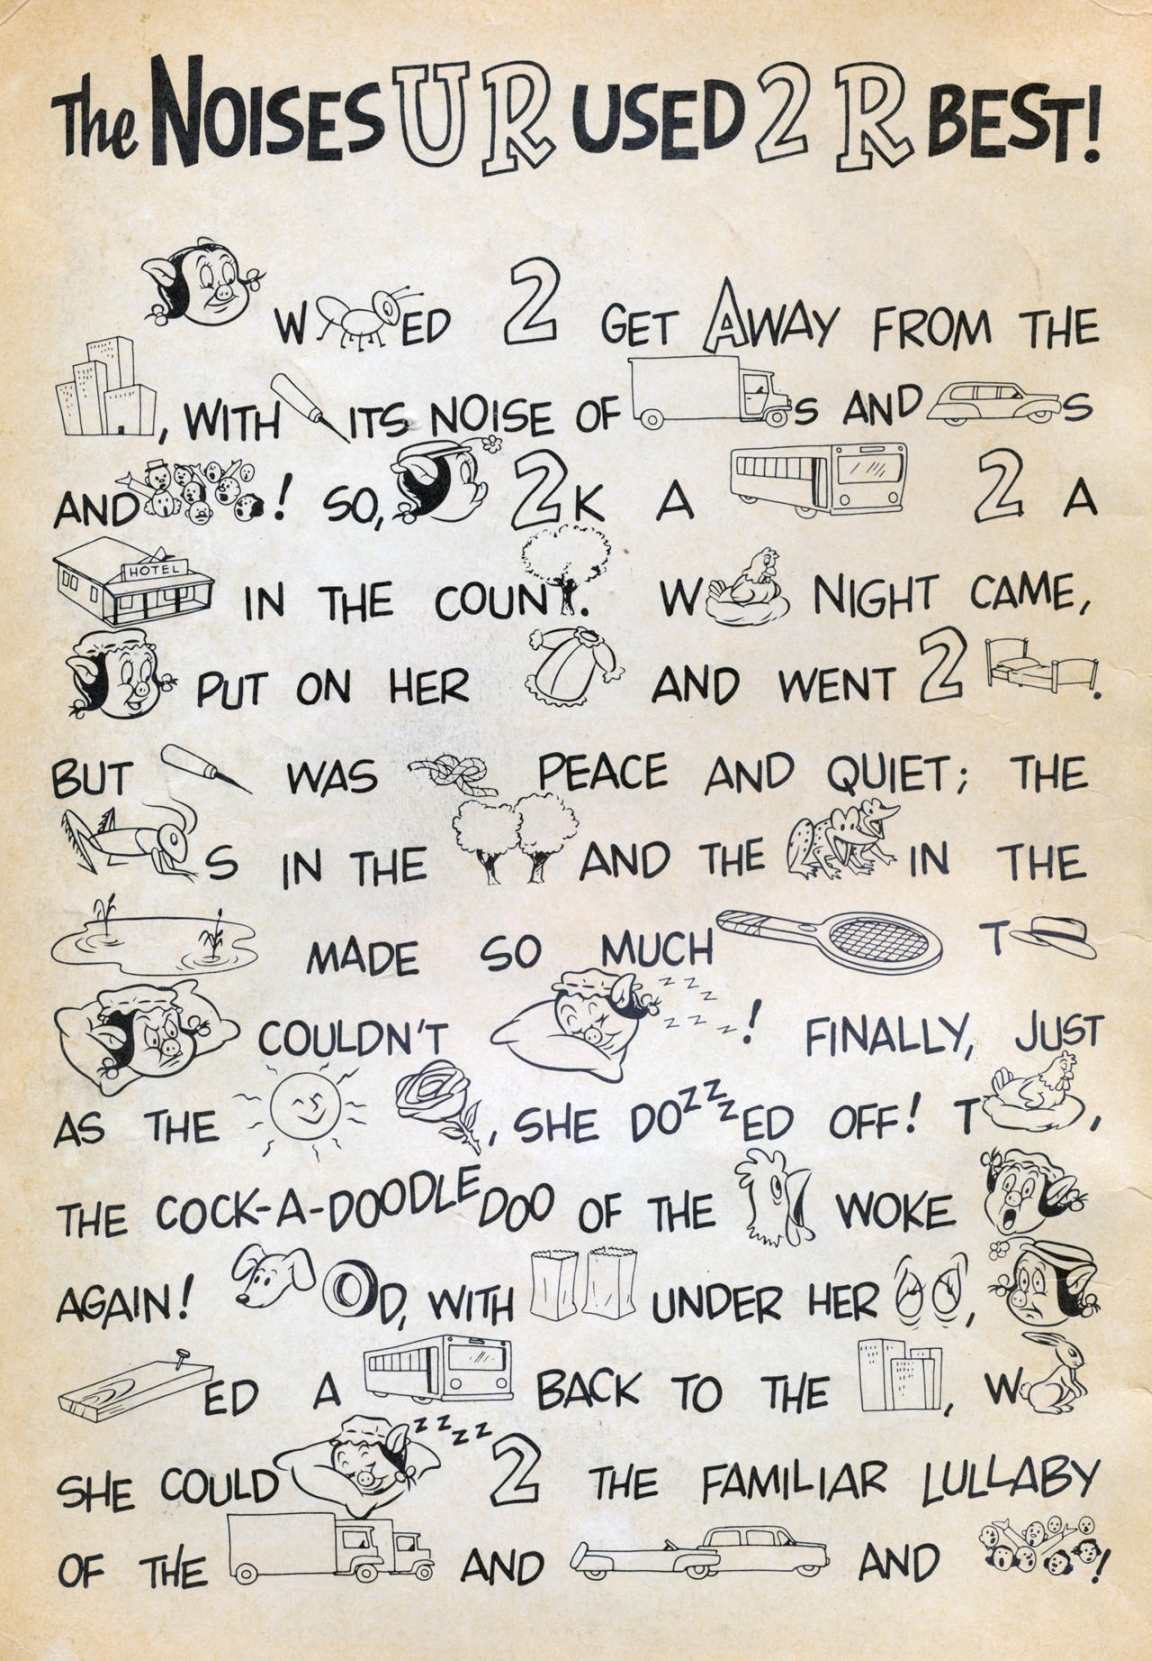 The NOISES U R USED 2 R BEST!
W ED 2 GET AWAY FROM THE
, WITH ITS NOISE OF S AND S
AND ! SO, 2K A 2 A
HOTEL IN THE COUNT. W NIGHT CAME,
PUT ON HER AND WENT 2 .
BUT WAS PEACE AND QUIET; THE
S IN THE AND THE IN THE
MADE SO MUCH T
COULDN'T zzz zzz! FINALLY, JUST
AS THE , SHE DOZZZZED OFF! T ,
THE COCK-A-DOODLE DOO OF THE WOKE
AGAIN! OD, WITH UNDER HER ,
ED A BACK TO THE , W
SHE COULD zzzz 2 THE FAMILIAR LULLABY
OF THE AND AND !